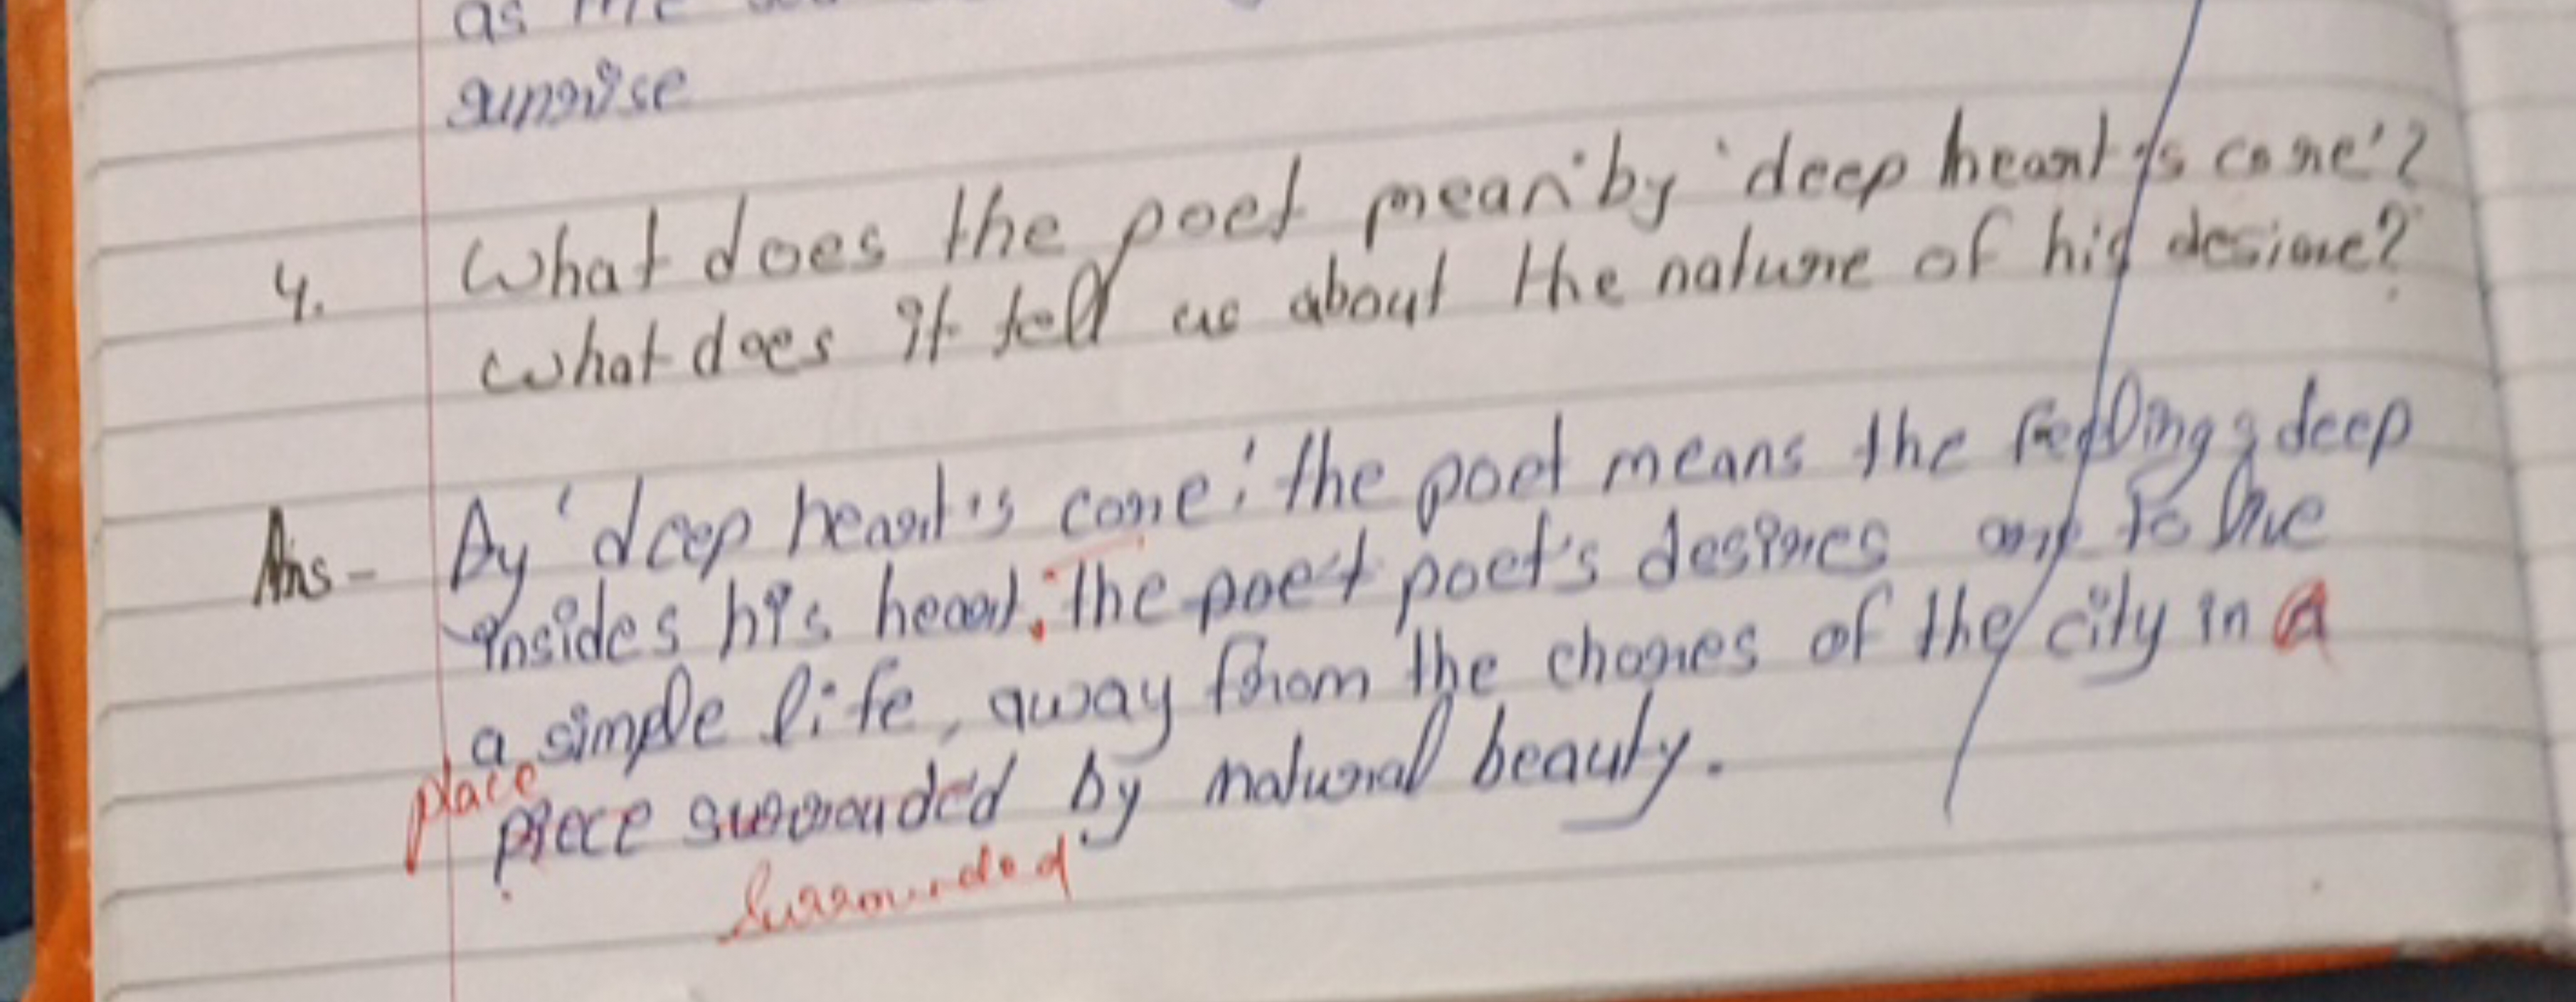 as the
sunrise
4. What does the poet mean by 'deep heart's core'?
what does it tell us about the nature of his desire?
Ans- By 'deep heart's core', the poet means the feelings deep
insides his heart. the poet poet's desires are to live
a simple life, away from the chores of the city in a
place
piece surrouded by natural beauty.
Surrounded